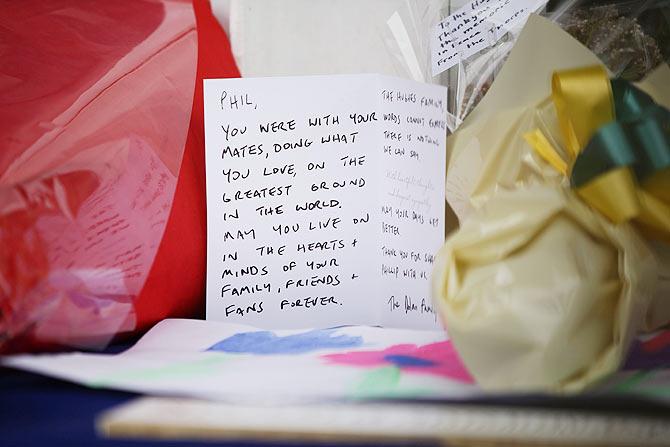 To the Hughes
Thankyou
the memories
in Peace
From the
PHIL,
YOU WERE WITH YOUR
MATES, DOING WHAT
YOU LOVE, ON THE
GREATEST GROUND
IN THE WORLD.
MAY YOU LIVE ON
IN THE HEARTS +
MINDS OF YOUR
FAMILY, FRIENDS +
FANS FOREVER.
THE HUGHES FAMILY,
WORDS CANNOT
THERE IS NOTHING
WE CAN SAY
With heartfelt thoughts
and deepest sympathy
MAY YOUR DAYS GET
BETTER
THANK YOU FOR
PHILLIP WITH US.
The Family